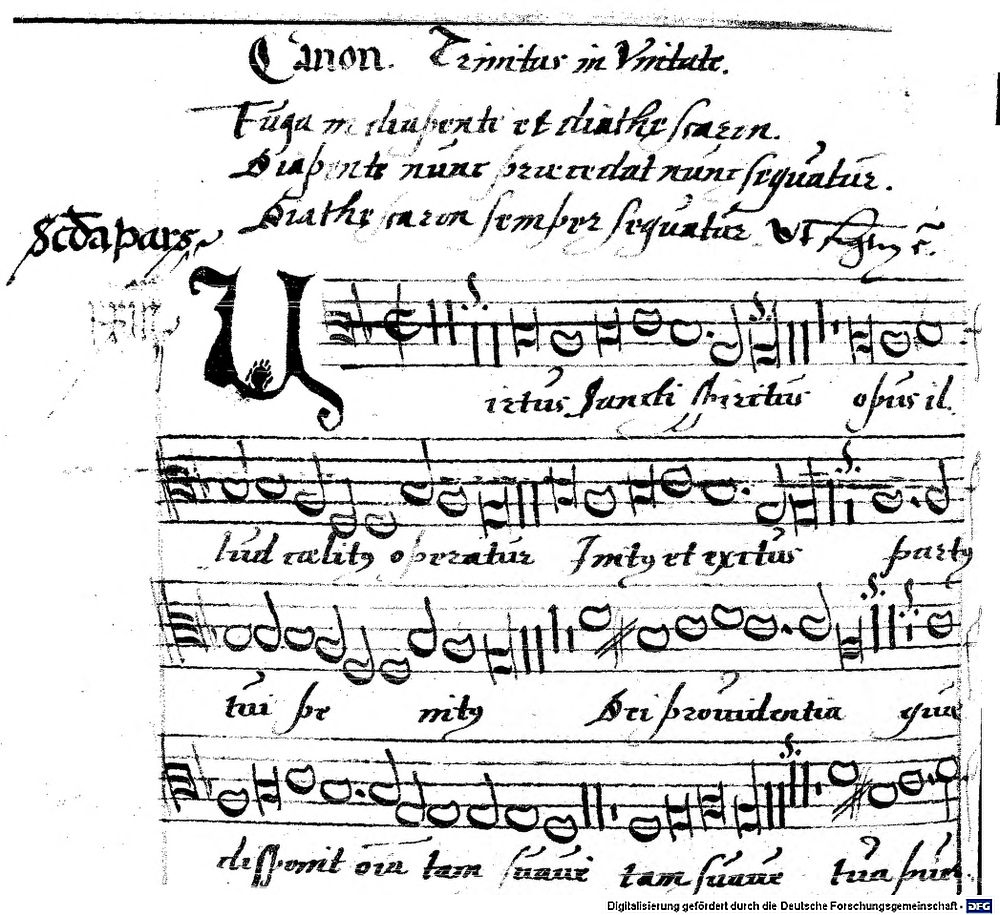 Canon. Trinitas in Vnitate.
Fuga in diapente et diathessaron.
Diapente nunc præcedat nunc sequatur.
Diathessaron semper sequatur
Scda pars
Virtus Sancti Spiritus opus il.
lud cælitus operatur Imtus et exitus partus
tui pe nitus Dei prouidentia quæ
disponit oīa tam suaue tam suaue tua puer.
Digitalisierung gefördert durch die Deutsche Forschungsgemeinschaft - DFG